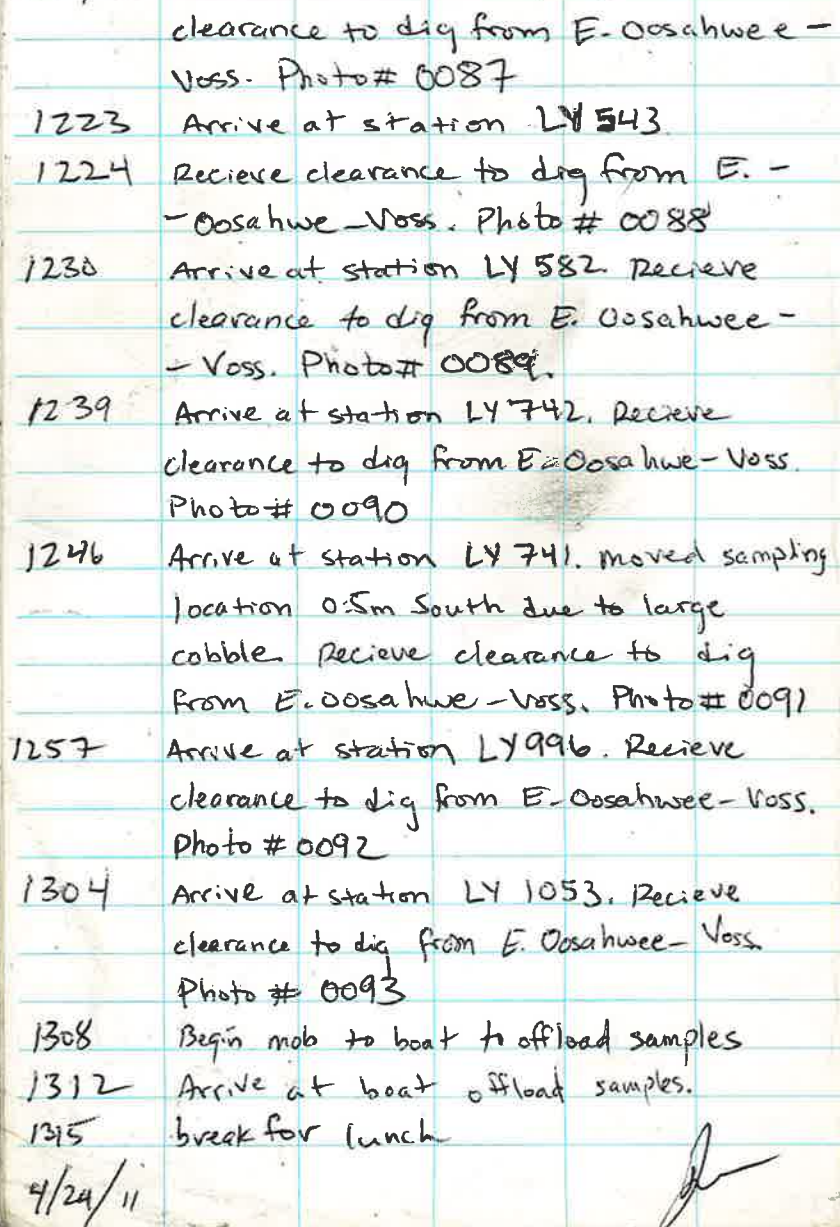 clearance to dig from E. Oosahwee -
Voss. Photo# 0087
1223 Arrive at station LY 543
1224 Recieve clearance to dig from E. -
- Oosahwe - Voss. Photo # 0088
1230 Arrive at station LY 582. Recieve
clearance to dig from E. Oosahwee -
- Voss. Photo# 0089.
1239 Arrive at station LY 742. Recieve
clearance to dig from E. Oosahwe - Voss.
Photo# 0090
1246 Arrive at station LY 741. moved sampling
location 0.5m South due to large
cobble. Recieve clearance to dig
from E. Oosahwe - Voss. Photo# 0091
1257 Arrive at station LY 996. Recieve
clearance to dig from E. Oosahwee - Voss.
Photo # 0092
1304 Arrive at station LY 1053. Recieve
clearance to dig from E. Oosahwee - Voss.
Photo # 0093
1308 Begin mob to boat to offload samples
1312 Arrive at boat offload samples.
1315 break for lunch